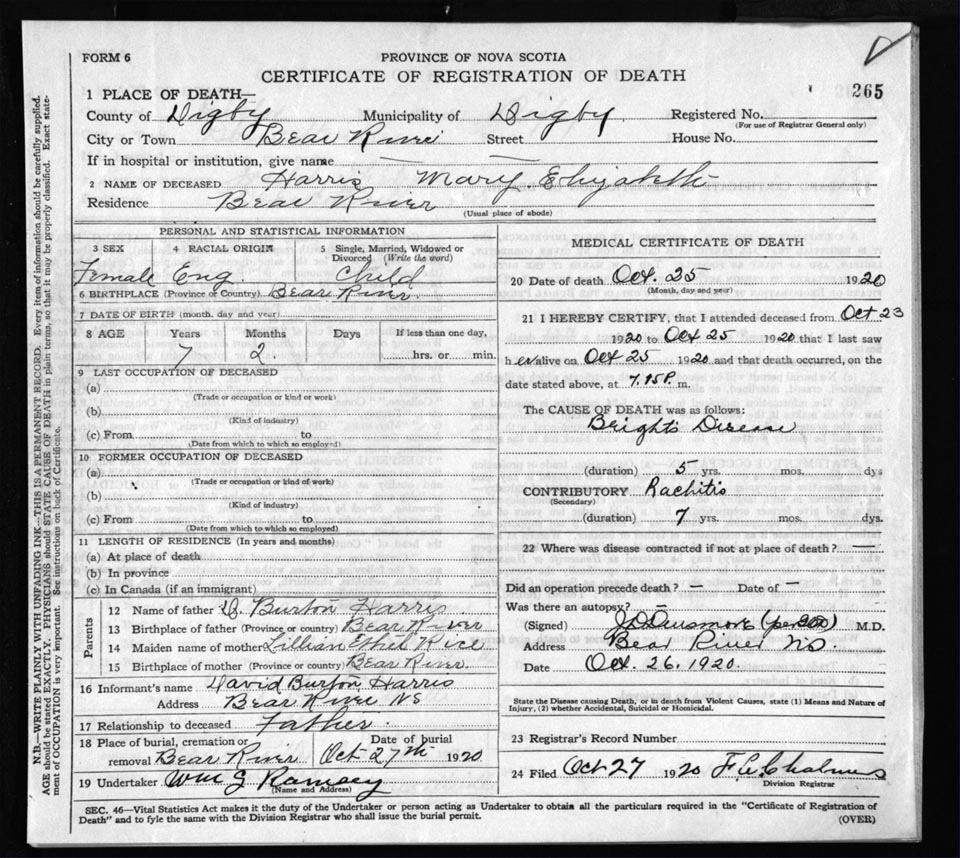 FORM 6
PROVINCE OF NOVA SCOTIA
CERTIFICATE OF REGISTRATION OF DEATH
265
1 PLACE OF DEATH—
County of Digby Municipality of Digby Registered No.
(For use of Registrar General only)
City or Town Bear River Street House No.
If in hospital or institution, give name — —
2 NAME OF DECEASED Harris Mary Elizabeth
Residence Bear River
(Usual place of abode)
PERSONAL AND STATISTICAL INFORMATION
3 SEX 4 RACIAL ORIGIN 5 Single, Married, Widowed or
Divorced (Write the word)
Female Eng. Child
6 BIRTHPLACE (Province or Country) Bear River
7 DATE OF BIRTH (month, day and year)
8 AGE Years Months Days If less than one day,
7 2 hrs. or min.
9 LAST OCCUPATION OF DECEASED
(a)
(Trade or occupation or kind or work)
(b)
(Kind of industry)
(c) From to
(Date from which to which so employed)
10 FORMER OCCUPATION OF DECEASED
(a)
(Trade or occupation or kind of work)
(b)
(Kind of industry)
(c) From to
(Date from which to which so employed)
11 LENGTH OF RESIDENCE (In years and months)
(a) At place of death
(b) In province
(c) In Canada (if an immigrant)
Parents
12 Name of father D. Burton Harris
13 Birthplace of father (Province or country) Bear River
14 Maiden name of mother Lillian Ethel Rice
15 Birthplace of mother (Province or country) Bear River.
16 Informant's name David Burton Harris
Address Bear River NS
17 Relationship to deceased Father.
18 Place of burial, cremation or Date of burial
removal Bear River Oct 27th 1920
19 Undertaker Wm G Ramsey
(Name and Address)
MEDICAL CERTIFICATE OF DEATH
20 Date of death Oct. 25 1920
(Month, day and year)
21 I HEREBY CERTIFY, that I attended deceased from Oct 23
1920 to Oct 25 1920 that I last saw
h er alive on Oct 25 1920 and that death occurred, on the
date stated above, at 7.15 P. m.
The CAUSE OF DEATH was as follows:
Bright's Disease
(duration) 5 yrs. mos. dys
CONTRIBUTORY Rachitis
(Secondary)
(duration) 7 yrs. mos. dys.
22 Where was disease contracted if not at place of death? —
Did an operation precede death? — Date of —
Was there an autopsy? —
(Signed) M.D.
Address Bear River NS.
Date Oct. 26. 1920.
State the Disease causing Death, or in death from Violent Causes, state (1) Means and Nature of
Injury, (2) whether Accidental, Suicidal or Homicidal.
23 Registrar's Record Number
24 Filed Oct 27 1920
Division Registrar
SEC. 46—Vital Statistics Act makes it the duty of the Undertaker or person acting as Undertaker to obtain all the particulars required in the "Certificate of Registration of
Death" and to fyle the same with the Division Registrar who shall issue the burial permit.
(OVER)
N.B.—WRITE PLAINLY WITH UNFADING INK—THIS IS A PERMANENT RECORD. Every item of information should be carefully supplied.
AGE should be stated EXACTLY. PHYSICIANS should STATE CAUSE OF DEATH in plain terms, so that it may be properly classified. Exact state-
ment of OCCUPATION is very important. See instructions on back of Certificate.